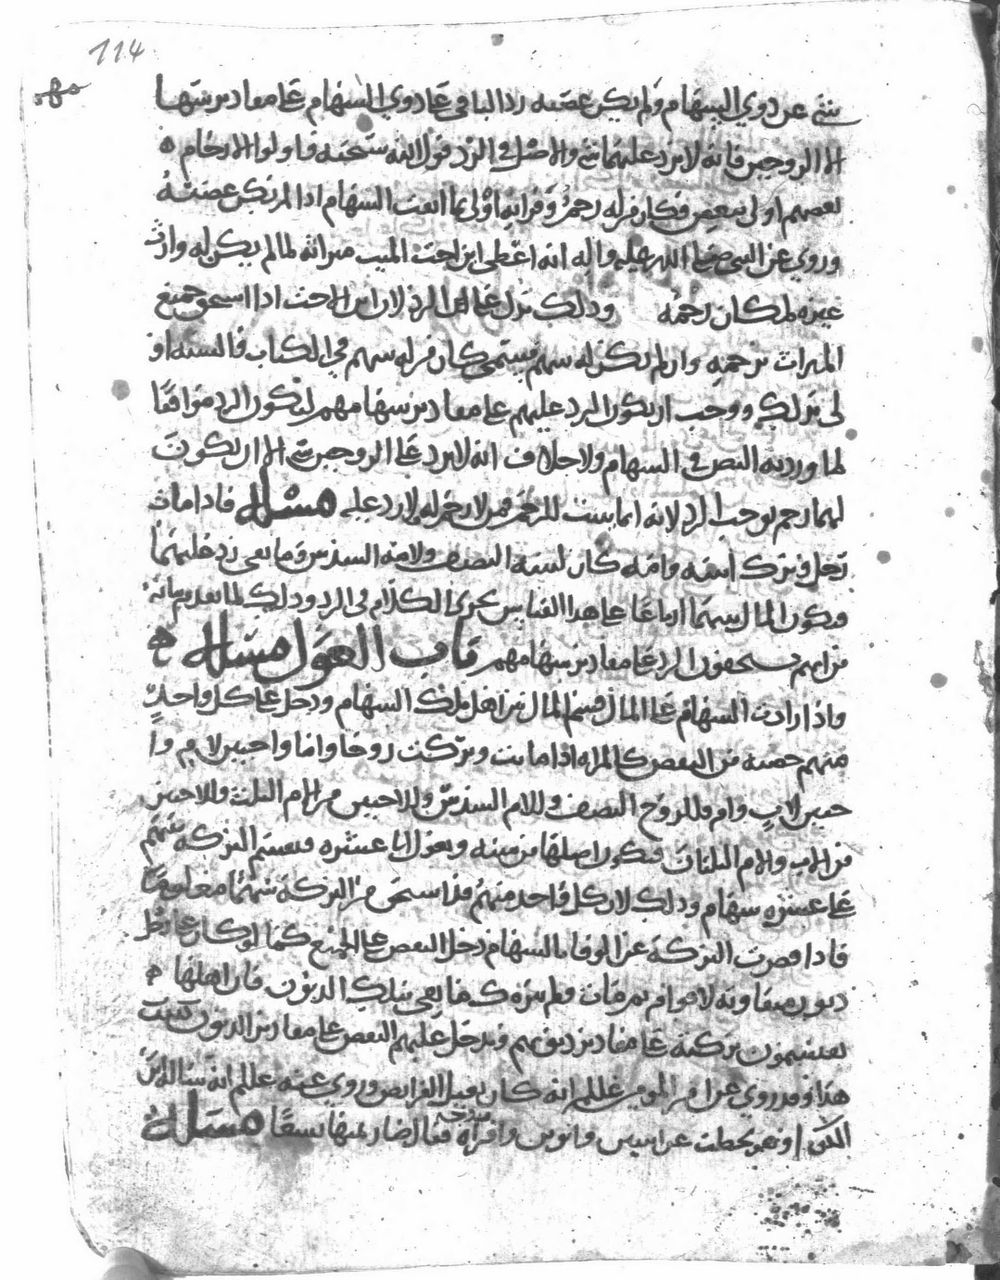 114
شي عن ذوي السهام ولم يكن عصبه رد الباقي على ذوي السهام على مقادير سهامها
الا الزوجين فانه لا يرد عليهما شي والاصل في الرد قول الله سبحنه واولوا الارحام
بعضهم اولى ببعض فكان من له رحم وقرابه اولى بما ابقت السهام اذا لم تكن عصبة
وروي عن النبي صلى الله عليه واله انه اعطى ابن اخت الميت ميراثه لما لم يكن له وارث
غيره لمكان رحمه وذلك يدل على الرد لان ابن الاخت اذا استحق جميع
الميراث برحمه وان لم يكن له سهم مسمى كان من له سهم في الكتاب والسنه او
لى بذلك ووجب ان يكون الرد عليهم على مقادير سهامهم ليكون الرد موافقا
لما ورد به النص في السهام ولا خلاف انه لا يرد على الزوجين شي الا ان يكون
لهما رحم يوجب الرد لانه انما يثبت للرحم فمن لا رحم له لا رد عليه مسئله فاذا مات
رجل وترك ابنته وامه كان لبنته النصف ولامه السدس وما بقي رد عليهما
ويكون المال بينهما ارباعا على هذا القياس يجري الكلام في الرد وذلك لما تقدم بيانه
من انهم يستحقون الرد على مقادير سهامهم باب العول مسئله
واذا زادت السهام على المال قسم المال بين اهل تلك السهام ودخل على كل واحد
منهم حصته من النقص كالمراه اذا ماتت وتركت زوجا واما واختين لام وا
ختين لاب وام فللزوج النصف وللام السدس وللاختين من الام الثلث وللاختين
من الاب والام الثلثان فتكون اصلها من سته وتعول الى عشره وتقسم التركه بينهم
على عشره سهام وذلك لان كل واحد منهم قد استحق من التركة سهما معلوما
فاذا قصرت التركة عن الوفاء بالسهام دخل النقص على الجميع كما لو كان على رجل
ديون متفاوته لاقوام ثم مات ولم يترك ما يفي بتلك الديون فان اهلها
يقتسمون تركته على مقادير ديونهم ويدخل عليهم النقص على مقادير الديون
هذا وقد روي عن امير المومنين عللم انه كان يعيل الفرائض وروي عنه عللم انه ساله ابن
الكوا وهو يخطب عن ابنتين وابوين وامراة فقال صار ثمنها تسعا مسئله